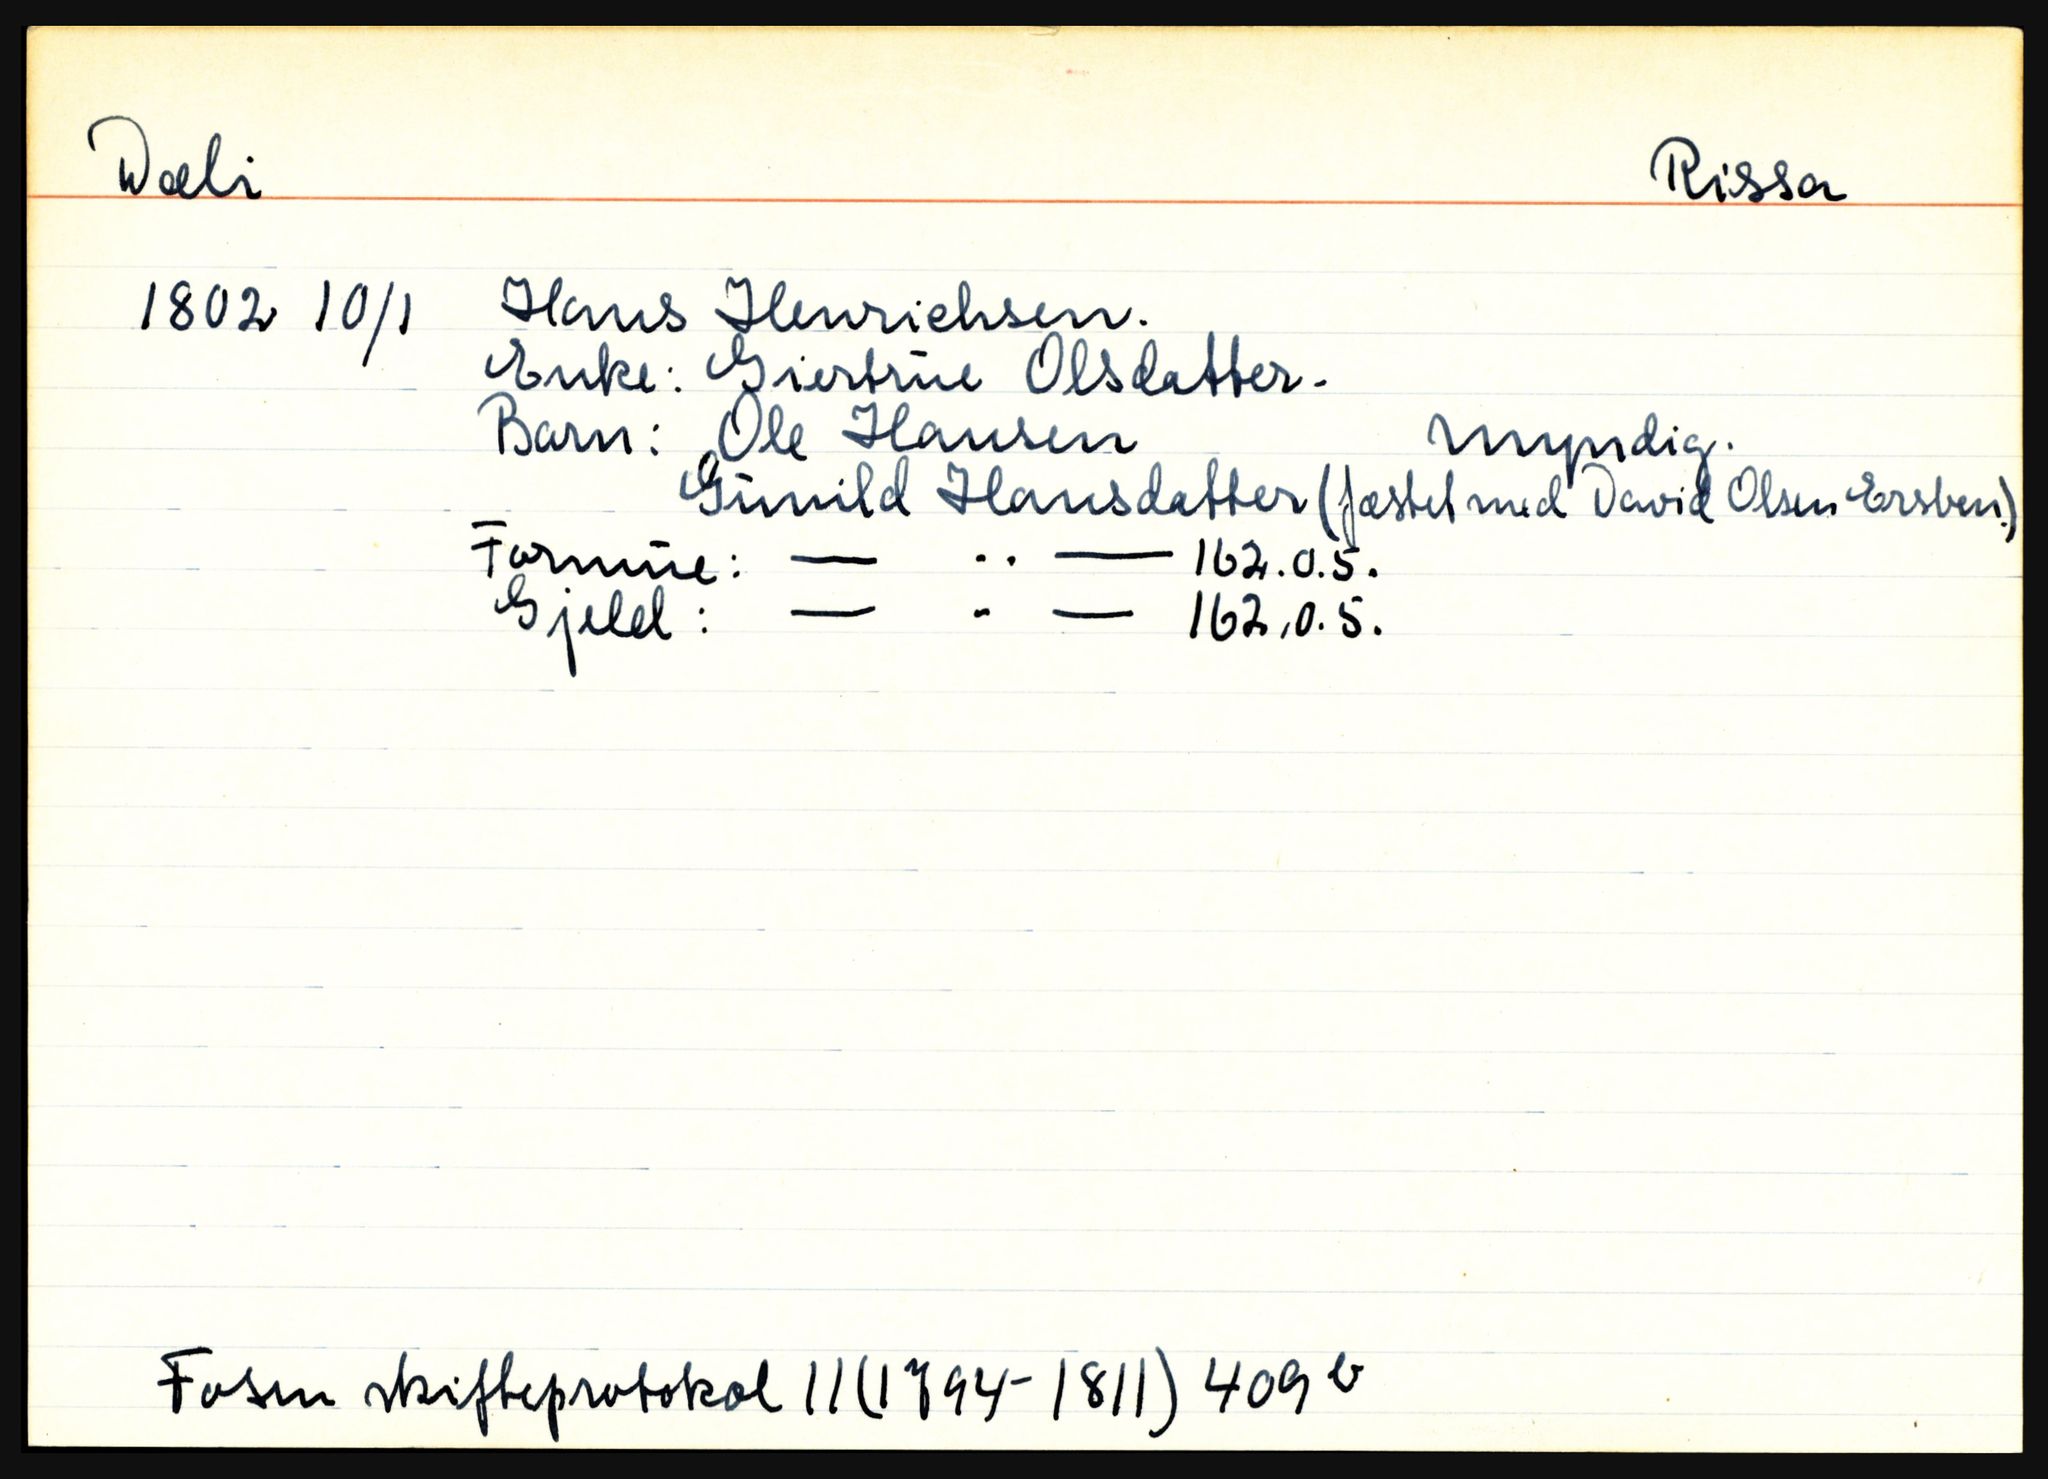 Wæli Rissa
1802 10/1 Hans Henrichsen.
Enke: Giertrue Olsdatter.
Barn: Ole Hansen myndig.
Gunild Hansdatter (fæstet med David Olsen Ersven.)
Formue: — .. — 162.0.5.
Gjeld: — - — 162.0.5.
Fosen skifteprotokol 11 (1794-1811) 409 b